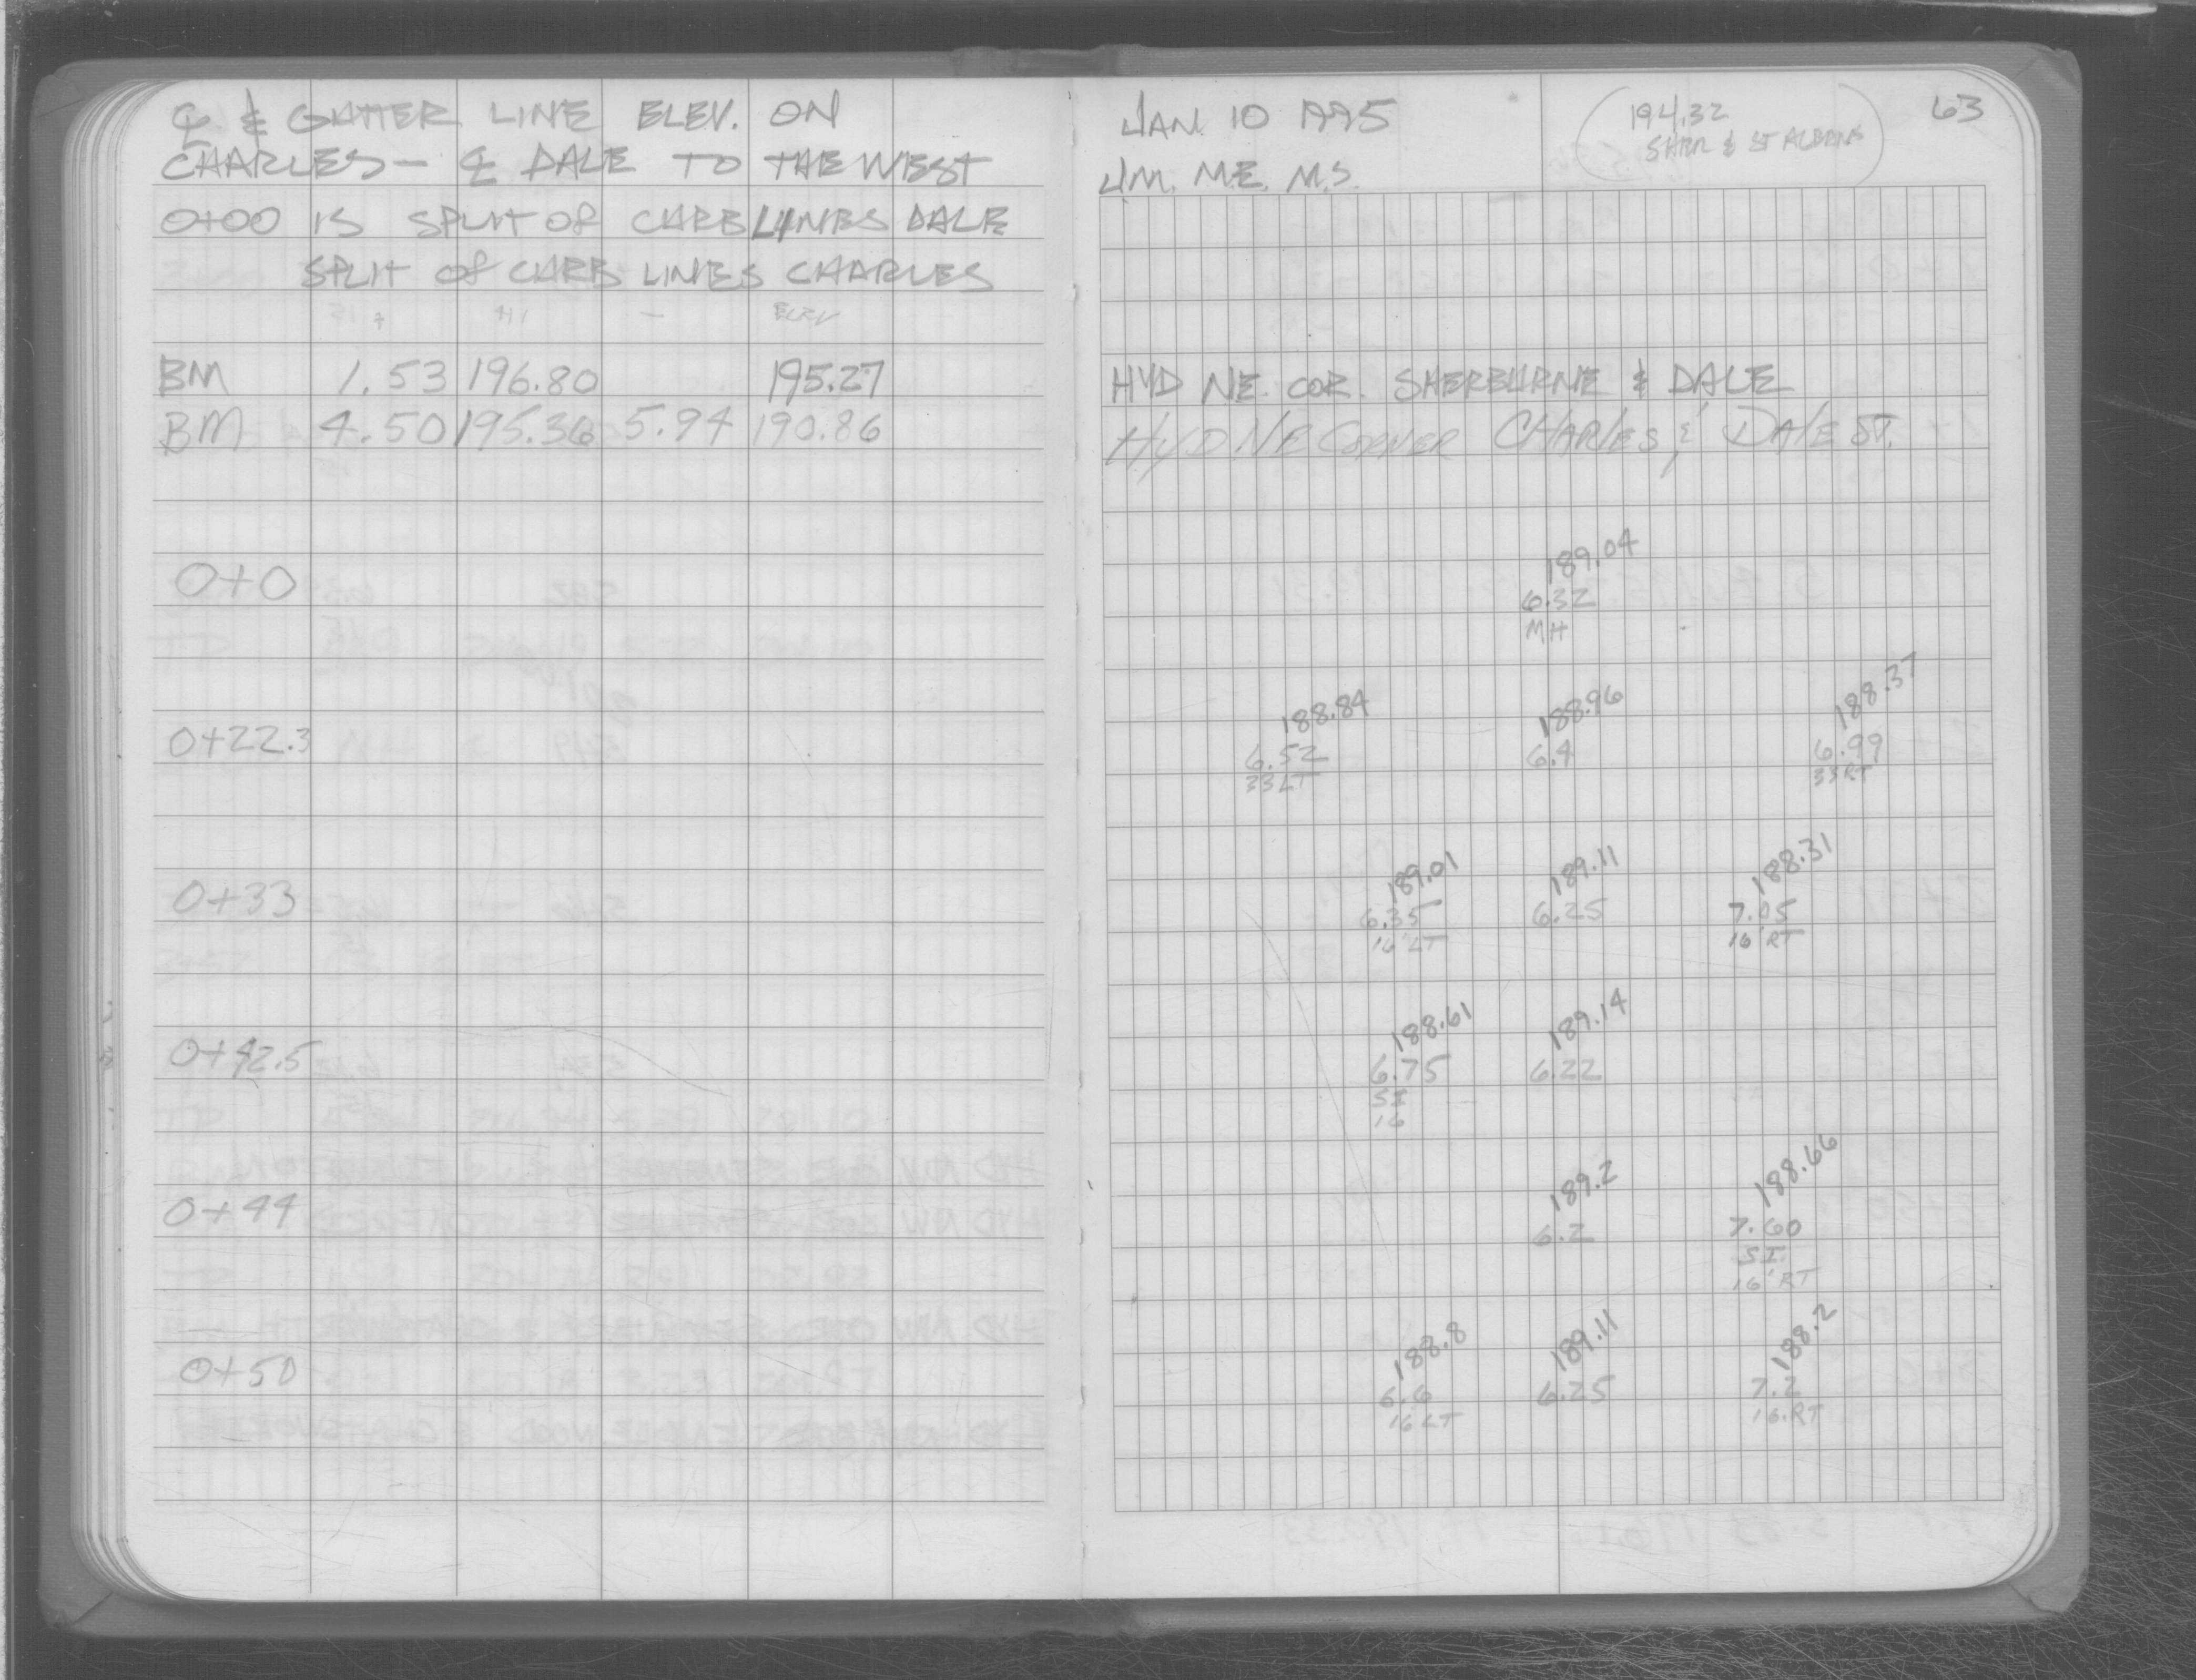 ℄ & GUTTER LINE ELEV. ON
CHARLES — ℄ DALE TO THE WEST
0+00 IS SPLIT OF CURB LINES DALE
SPLIT OF CURB LINES CHARLES
+ HI — ELEV
BM 1.53 196.80 195.27
BM 4.50 195.36 5.94 190.86
0+0
0+22.3
0+33
0+42.5
0+44
0+50
JAN 10 1995
J.M. M.E. M.S.
194.32
SHER & ST ALBANS
63
HYD NE. COR. SHERBURNE & DALE
HYD NE CORNER CHARLES & DALE ST.
189.04
6.32
MH
188.84 188.96 188.37
6.52 6.4 6.99
33 LT 33 RT
189.01 189.11 188.31
6.35 6.25 7.05
16' LT 16' RT
188.61 189.14
6.75 6.22
SI
16
189.2 188.66
6.2 7.60
SI
16' RT
188.8 189.11 188.2
6.6 6.25 7.2
16 LT 16. RT